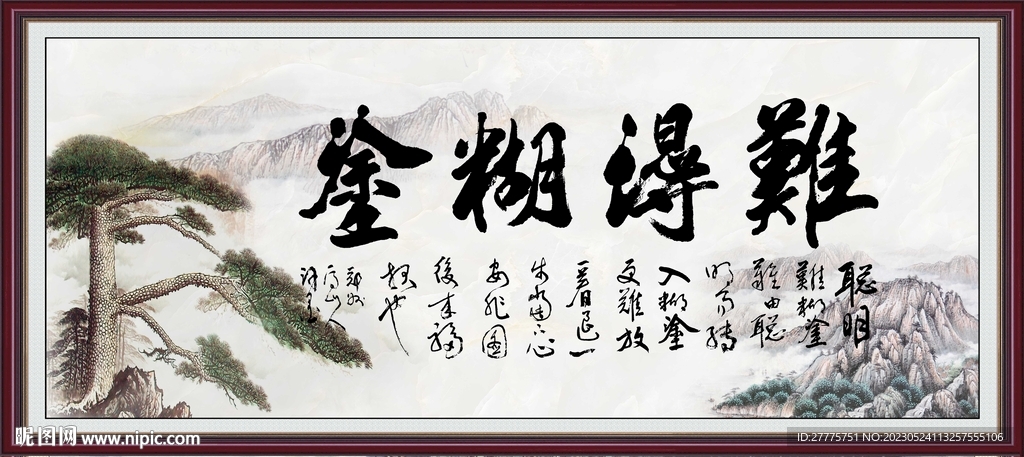 難得糊塗
聪明
難糊塗
難由聪
明而轉
入糊塗
更難放
一着退一
步當下心
安非圖
後来福
报也
昵图网 www.nipic.com
ID:27775751 NO:20230524113257555106